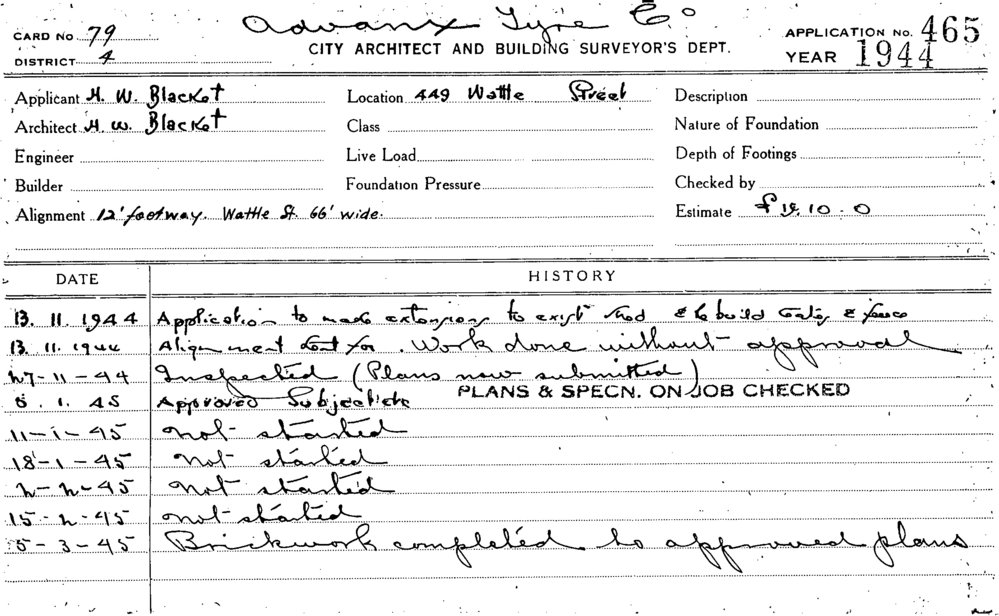 Advanx Tyre Co
CARD No 79
CITY ARCHITECT AND BUILDING SURVEYOR'S DEPT.
APPLICATION No. 465
DISTRICT 4
YEAR 1944
Applicant H. W. Blacket
Location 449 Wattle Street
Description
Architect H. W. Blacket
Class
Nature of Foundation
Engineer
Live Load
Depth of Footings
Builder
Foundation Pressure
Checked by
Alignment 12' footway. Wattle St. 66' wide.
Estimate £ 10. 0
DATE HISTORY
13. 11. 1944 Application to make extensions to exist shed & rebuild gates & fence
13. 11. 1944 Alignment sent for. Work done without approval
27-11-44 Inspected (Plans now submitted)
PLANS & SPECN. ON JOB CHECKED
1. 45 Approved Subject
11-1-45 not started
18-1-45 not started
2-2-45 not started
15-2-45 not started
5-3-45 Brickwork completed to approved plans